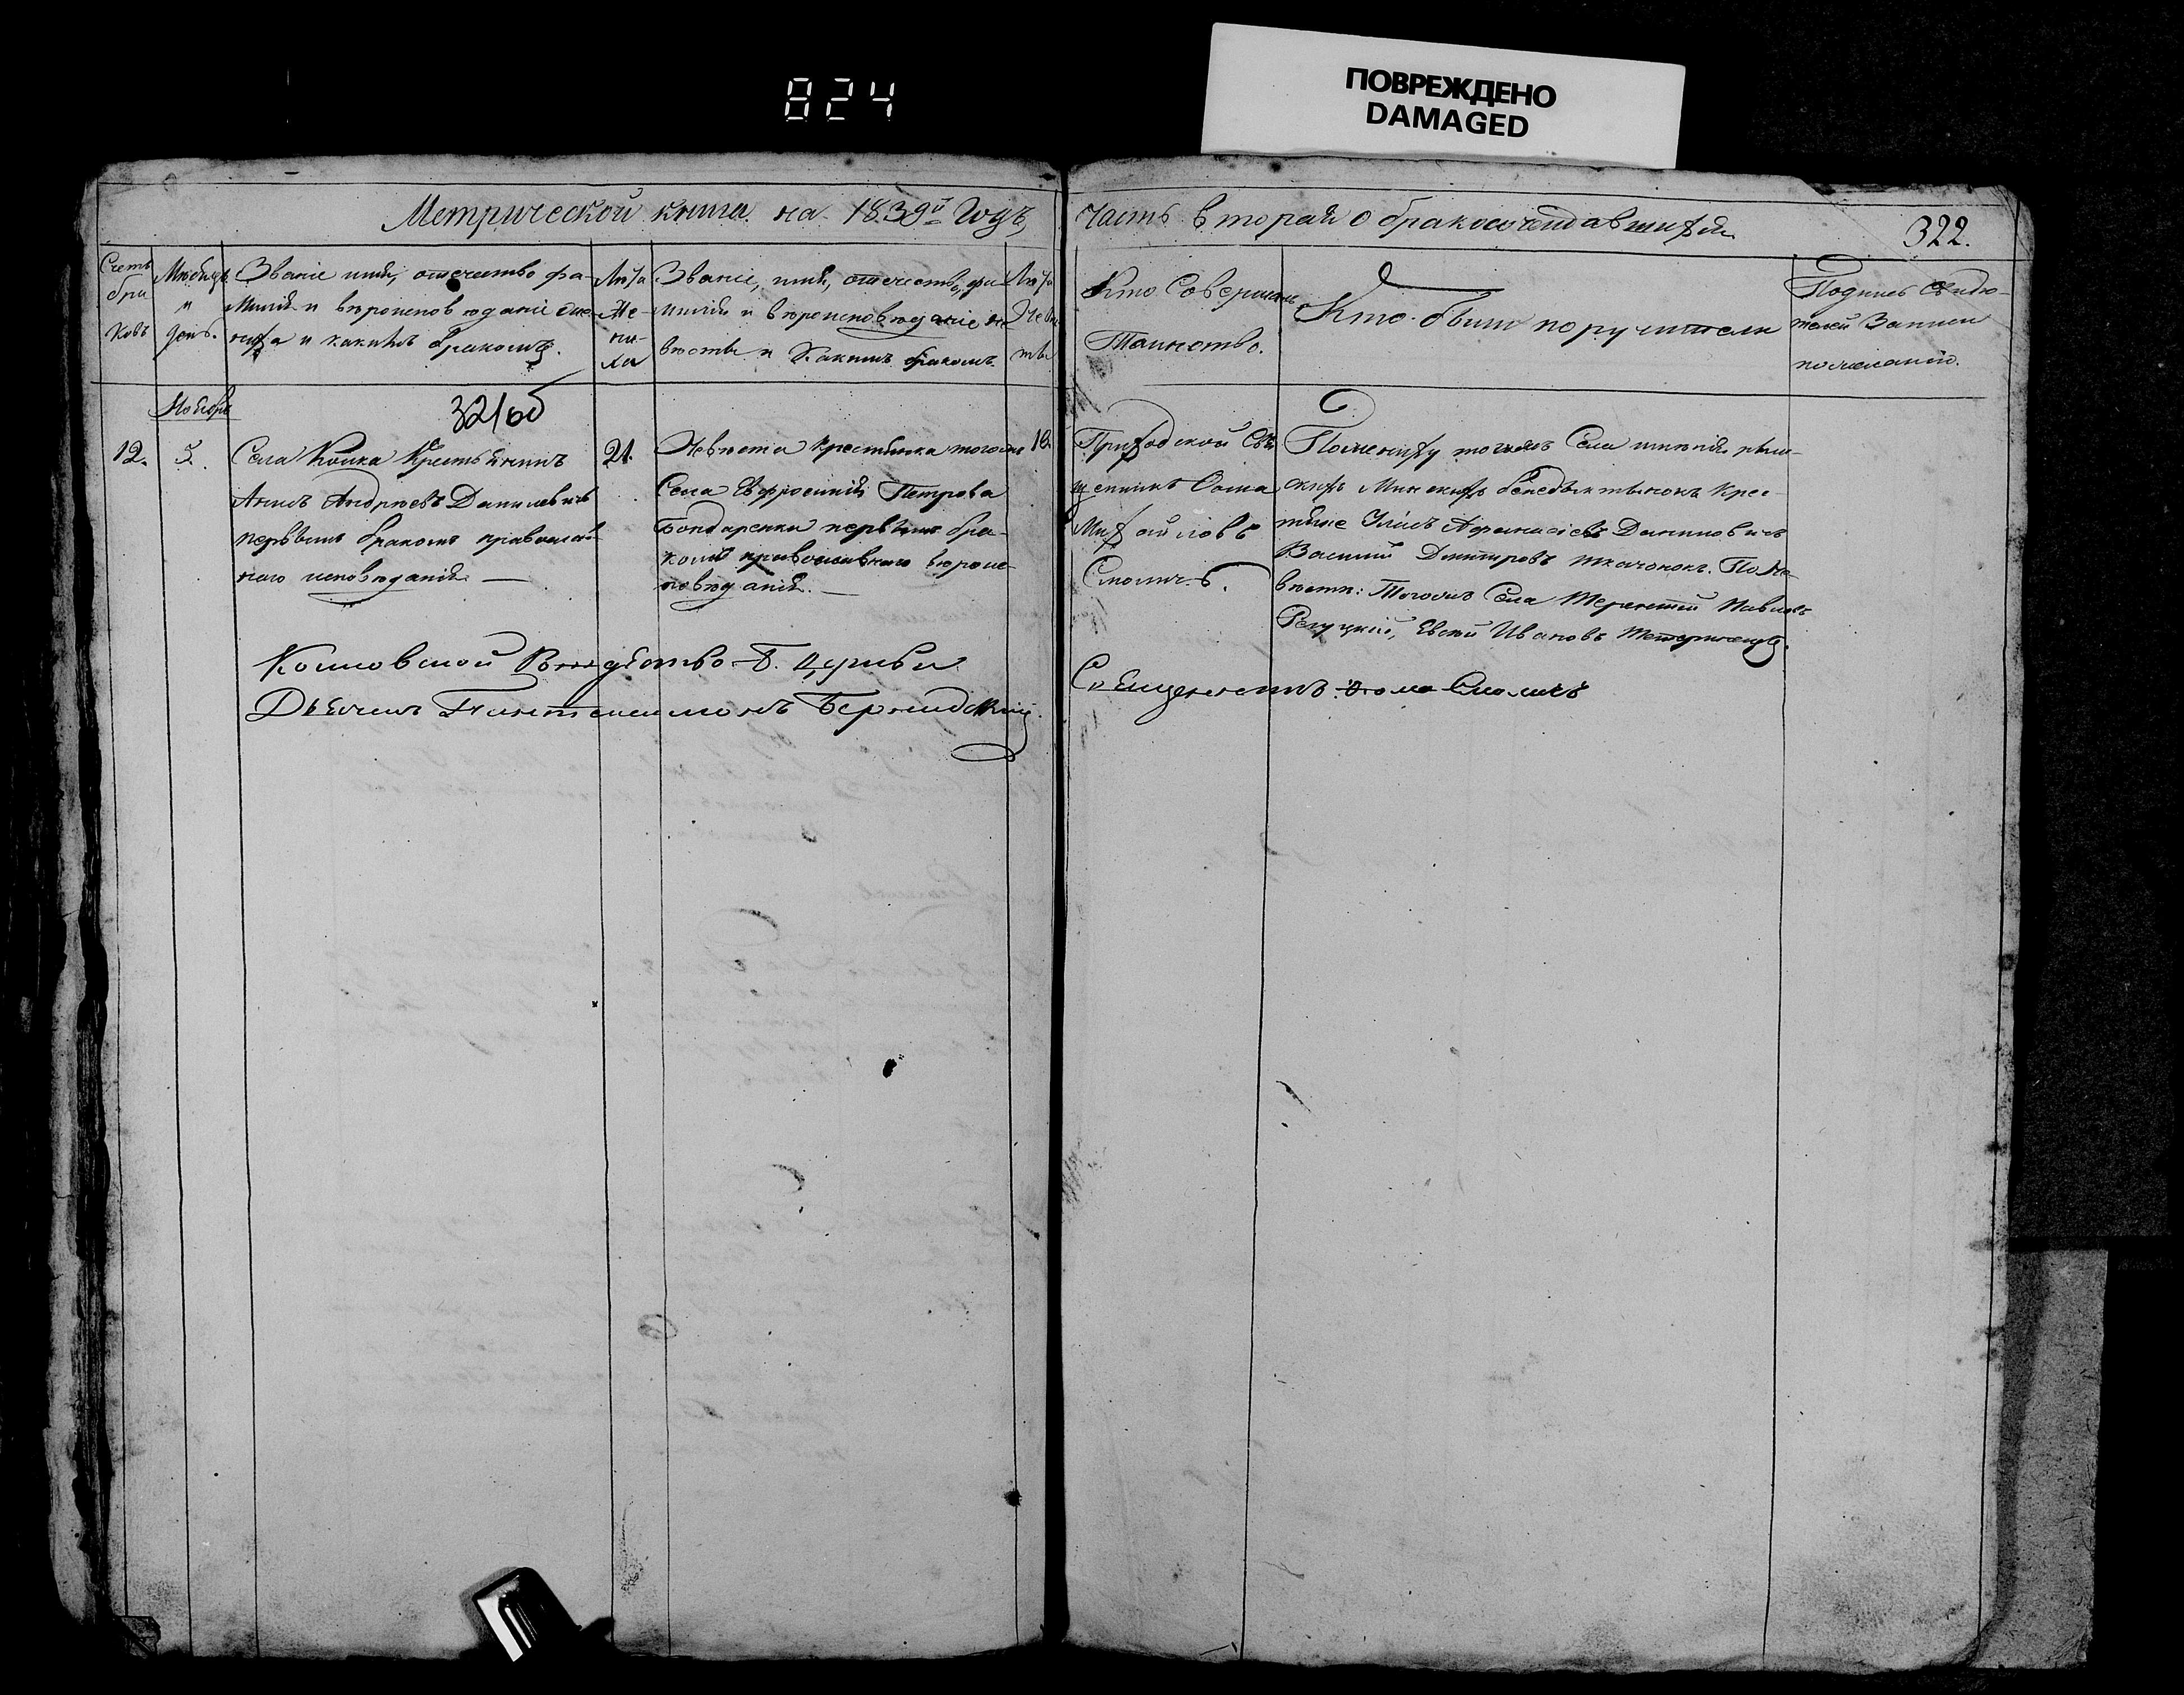 824
ПОВРЕЖДЕНО
DAMAGED
Метрической книги на 1839й Годъ,
Часть вторая о бракосочетавшихся
322.
Счетъ бра ковъ
Мѣсяцъ и день.
Званіе имя, отечество фа-
милія и вѣроисповѣданіе же-
ниха и какимъ бракомъ.
Лѣта Же- ни- ха
Званіе, имя, отечество, фа
милія и вѣроисповѣданіе не
вѣсты и Какимъ бракомъ.
Лѣта Невѣс ты
Кто Совершалъ
Таинство.
Кто былъ поручители
Подпись Свидѣ-
телей Записи
по желанію.
Ноябрь
321об
12.
5.
Села Крестьянинъ
Андрѣевъ Данилевичъ
первымъ бракомъ православ
наго исповѣданія —
21.
Невѣста Крестьянка тогожъ
Села Евфросинія Петрова
Бондаренка первымъ бра-
комъ православнаго вѣроис-
повѣданія. —
18
Приходской Свя
щенникъ Ѳома
Михайловъ
Смоличъ.
По жениху тогожъ Села имѣнія рим-
скихъ Минскихъ бенедыктынокъ Крес-
тяне Афанасіевъ Даниловичъ
Василій Димитровъ Ткачонокъ. По не-
вѣсти: Тогожъ Села Терентей Павловъ
Ивановъ
Вѣдомства Б. Церкви
Дьячекъ Пантелеимонъ
Священникъ Ѳома Смоличъ